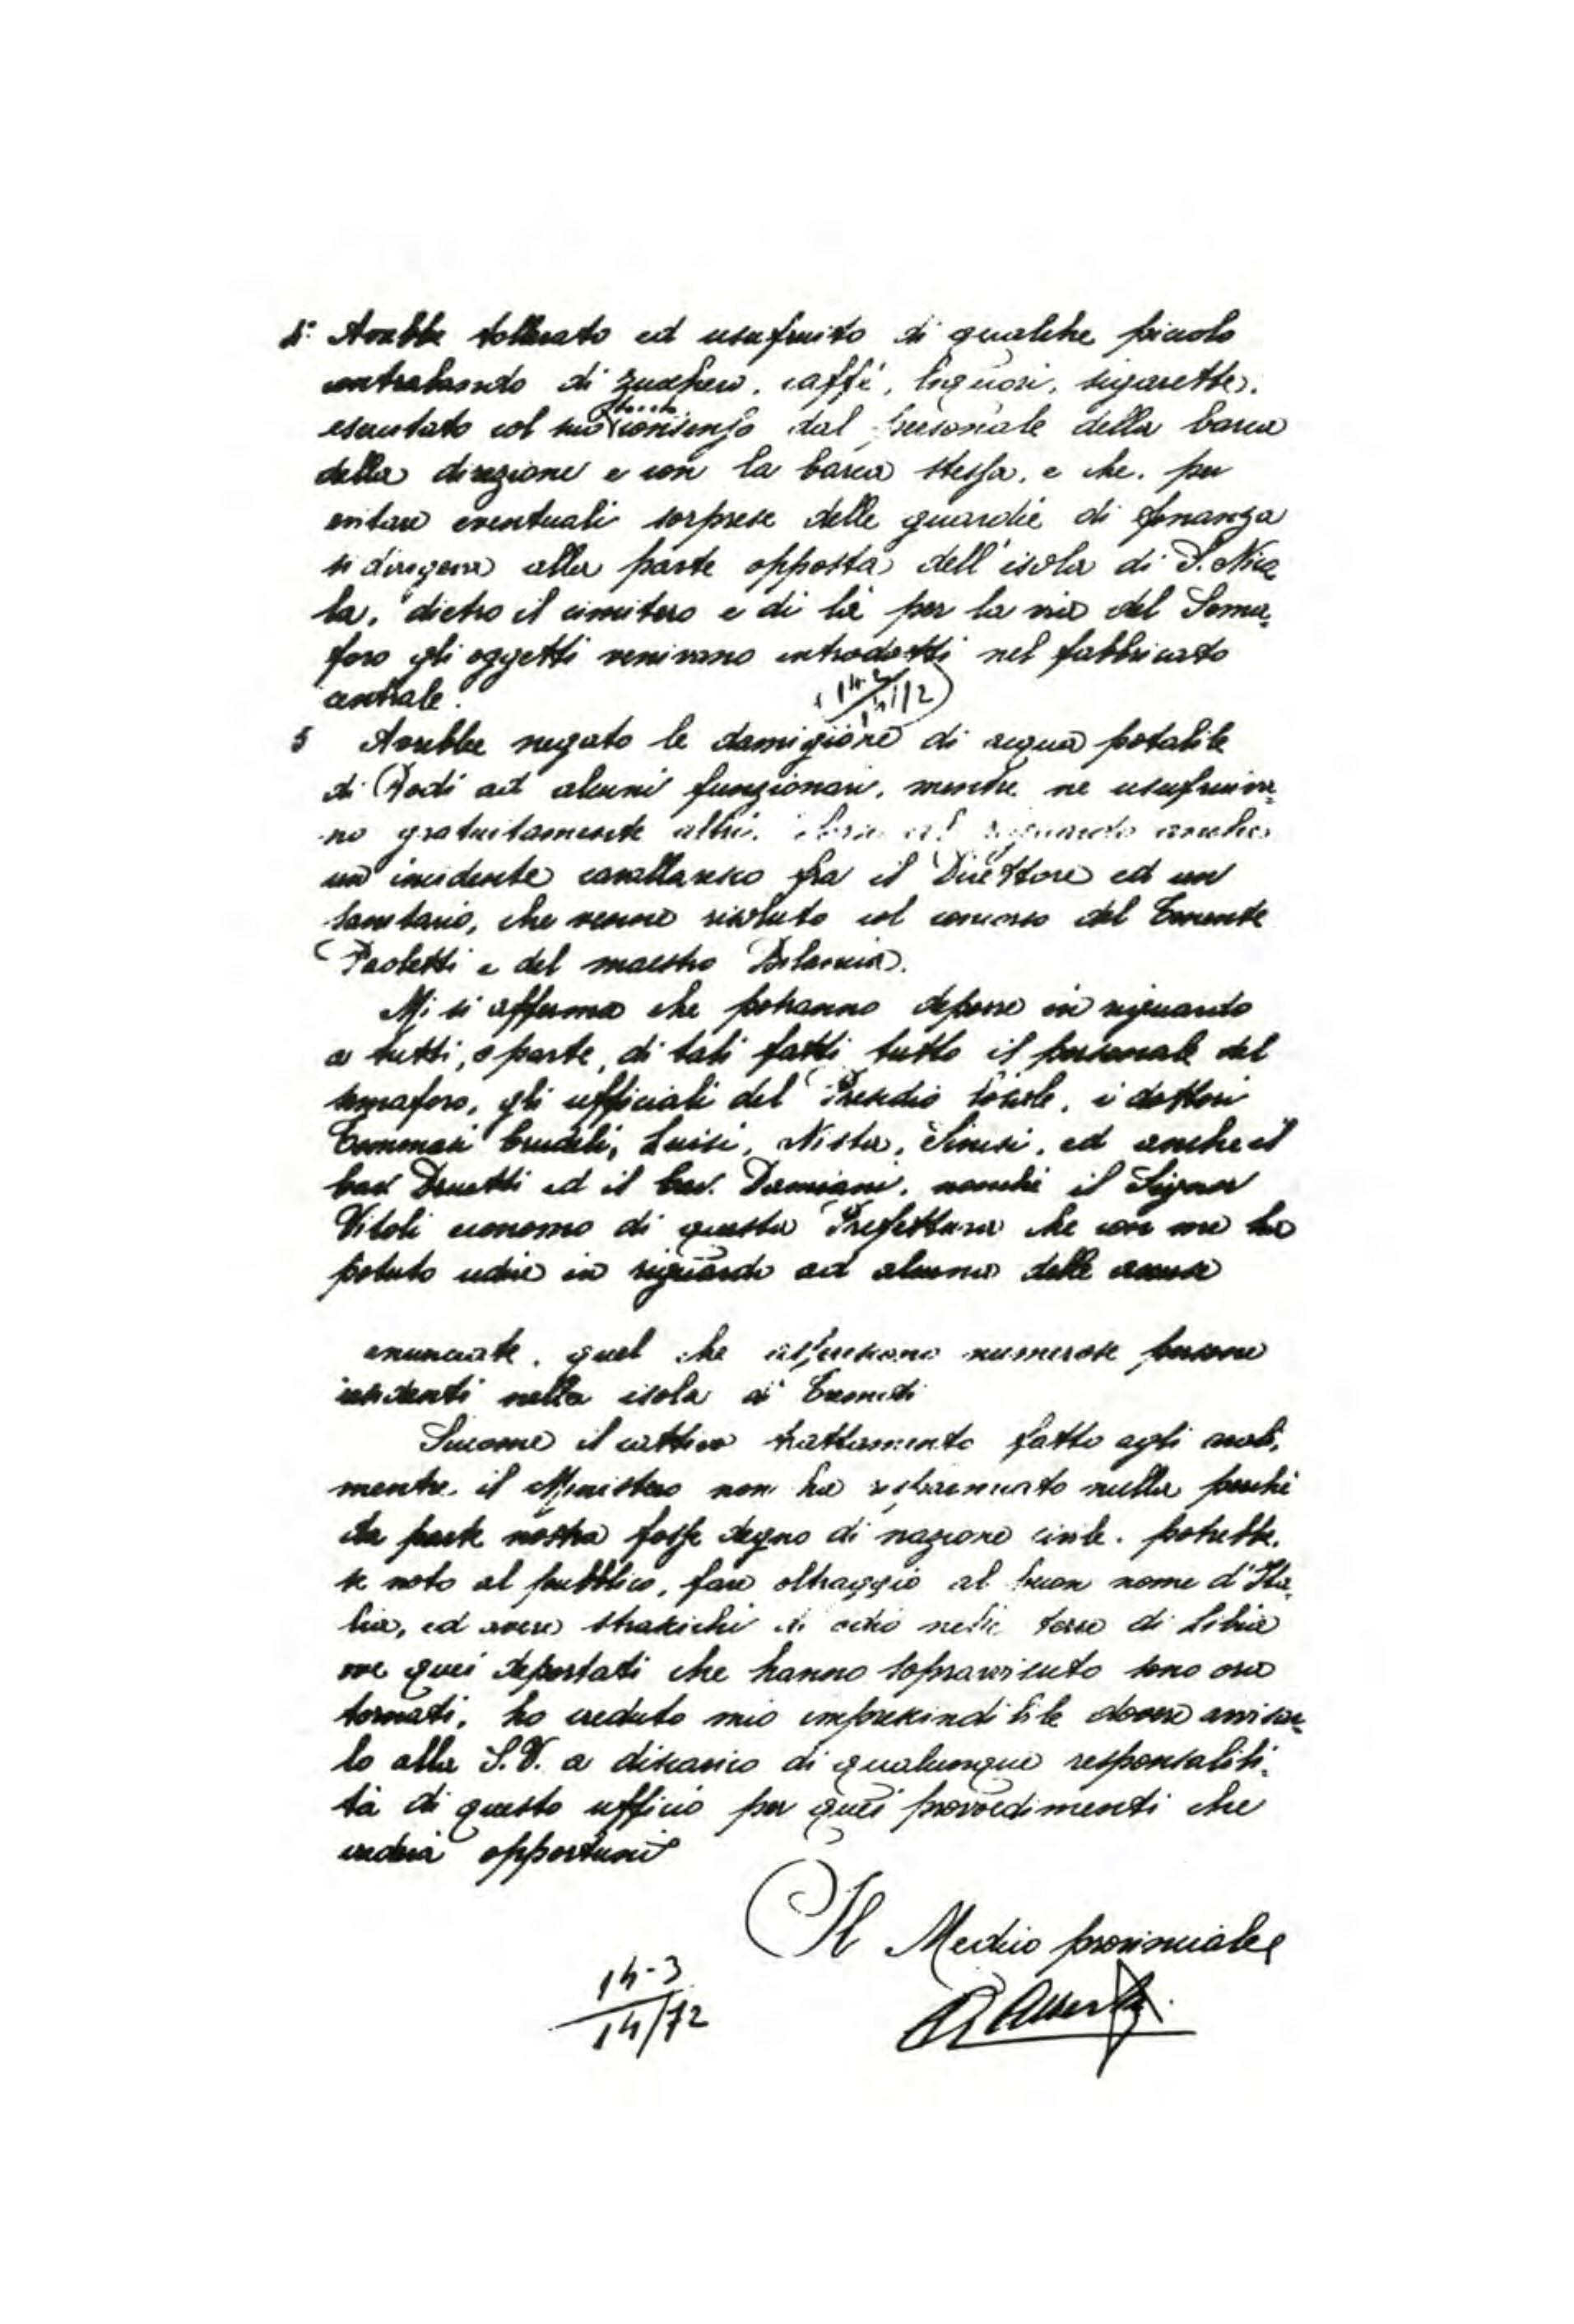 4° Avrebbe tollerato ed usufruito di qualche piccolo
contrabando di zucchero, caffé, liquori, sigarette,
esercitato col suo consenso dal personale della barca
della direzione e con la barca stessa, e che, per
evitare eventuali sorprese delle guardie di finanza
si dirigeva alla parte opposta dell'isola di S. Nico
la, dietro il cimitero e di là per la via del Sema=
foro gli oggetti venivano introdotti nel fabbricato
centrale.
5 Avrebbe negato le damigiane di acqua potabile
di Rodi ad alcuni funzionari, mentre ne usufruiva=
no gratuitamente altri. al riguardo anche
un incidente cavalleresco fra il Direttore ed un
sanitario, che venne risoluto col concorso del Tenente
Paoletti e del maestro
Mi si afferma che potranno deporre in riguardo
a tutti, o parte, di tali fatti tutto il personale del
semaforo, gli ufficiali del Presidio locale, i dottori
Tommasi Crudeli, Luisi, Nista, Sinisi, ed anche il
Cav. Druetti ed il Cav. Damiani, nonché il Signor
Vitoli economo di questa Prefettura che con me ha
potuto udire in riguardo ad alcuna delle accuse
enunciate, quel che asseriscono numerose persone
residenti nella isola di Tremiti
Siccome il cattivo trattamento fatto agli arabi,
mentre il Ministero non ha risparmiato nulla perché
da parte nostra fosse degno di nazione civile, potrebbe,
se noto al pubblico, fare oltraggio al buon nome d'Ita=
lia, ed avere strascichi di odio nelle terre di Libia
ove quei deportati che hanno sopravvissuto sono ora
tornati, ho creduto mio imprescindibile dovere avvisar=
lo alla S.V. a discarico di qualunque responsabili=
tà di questo ufficio per quei provvedimenti che
crederà opportuni
Il Medico provinciale
14-3
14/72